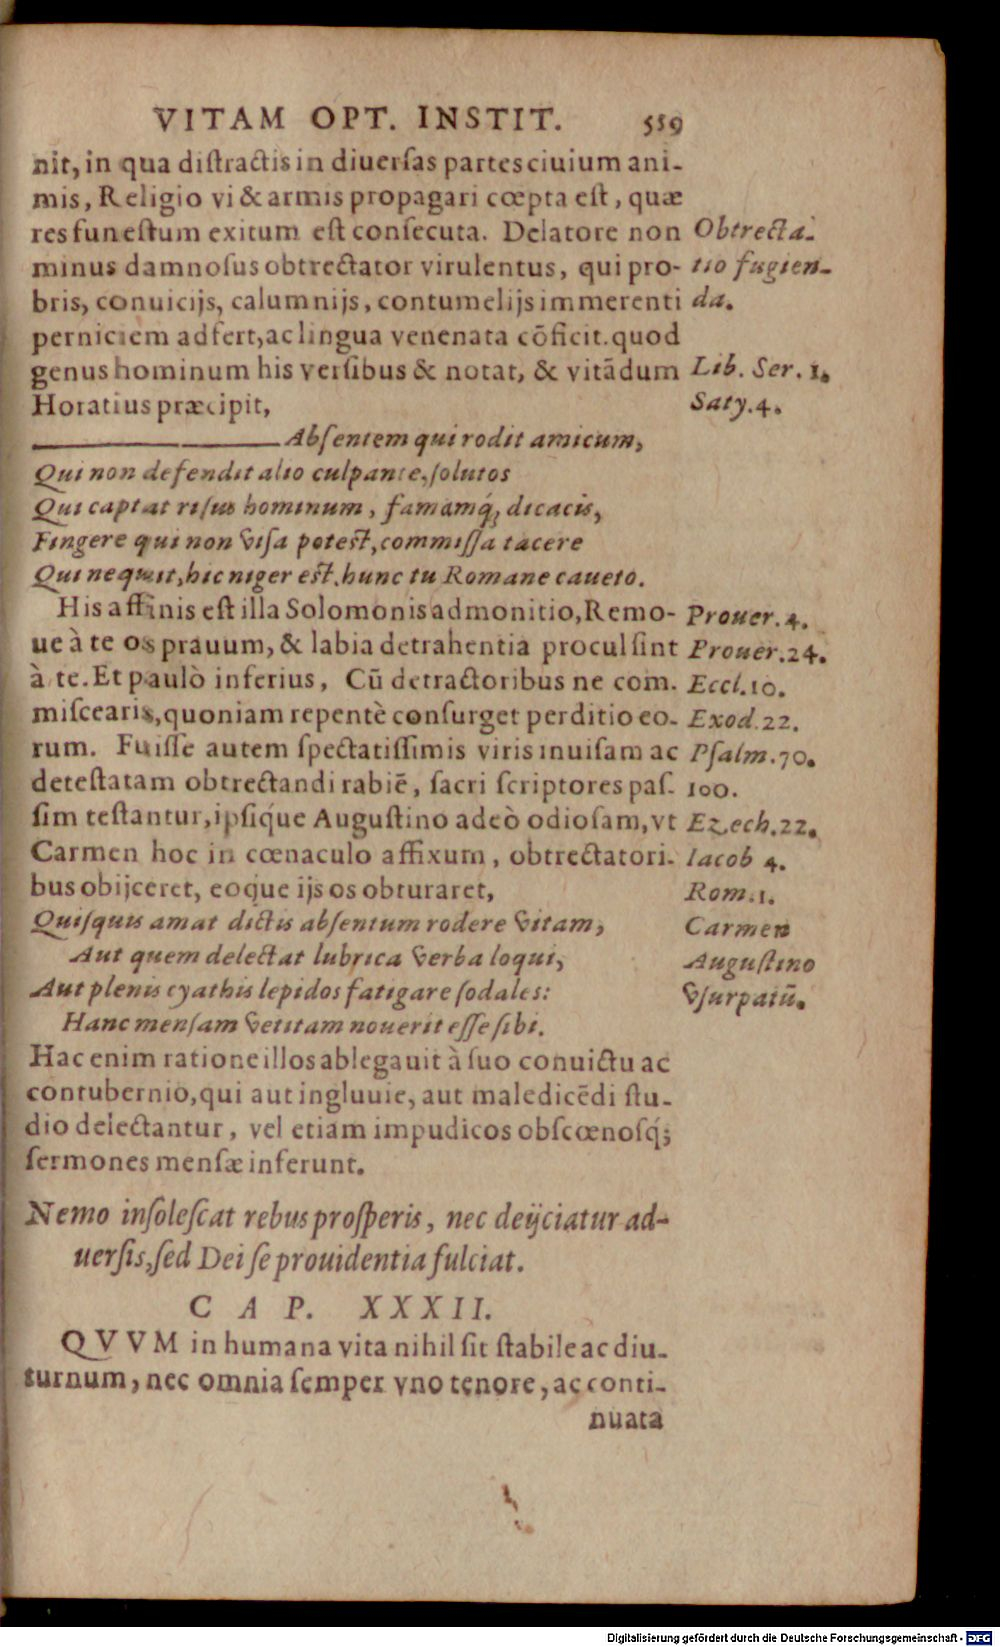 VITAM OPT. INSTIT. 559
nit, in qua distractis in diuersas partes ciuium ani-
mis, Religio vi & armis propagari cœpta est, quæ
res funestum exitum est consecuta. Delatore non
minus damnosus obtrectator virulentus, qui pro-
bris, conuicijs, calumnijs, contumelijs immerenti
perniciem adfert, ac lingua venenata cōficit. quod
genus hominum his versibus & notat, & vitādum
Horatius præcipit,
Obtrecta-
tio fugien-
da.
Lib. Ser. 1.
Saty. 4.
Absentem qui rodit amicum,
Qui non defendit alio culpante, solutos
Qui captat risus hominum, famamq́; dicacis,
Fingere qui non visa potest, commissa tacere
Qui nequit, hic niger est, hunc tu Romane caueto.
His affinis est illa Solomonis admonitio, Remo-
ue à te os prauum, & labia detrahentia procul sint
à te. Et paulò inferius, Cū detractoribus ne com-
miscearis, quoniam repentè consurget perditio eo-
rum. Fuisse autem spectatissimis viris inuisam ac
detestatam obtrectandi rabiē, sacri scriptores pas-
sim testantur, ipsiq́ue Augustino adeò odiosam, vt
Carmen hoc in cœnaculo affixum, obtrectatori-
bus obijceret, eoque ijs os obturaret,
Prouer. 4.
Prouer. 24.
Eccl. 10.
Exod. 22.
Psalm. 70.
100.
Ezech. 22.
Iacob 4.
Rom. 1.
Carmen
Augustino
vsurpatū.
Quisquis amat dictis absentum rodere vitam,
Aut quem delectat lubrica verba loqui,
Aut plenis cyathis lepidos fatigare sodales:
Hanc mensam vetitam nouerit esse sibi.
Hac enim ratione illos ablegauit à suo conuictu ac
contubernio, qui aut ingluuie, aut maledicēdi stu-
dio delectantur, vel etiam impudicos obscœnosq́;
sermones mensæ inferunt.
Nemo insolescat rebus prosperis, nec deijciatur ad-
uersis, sed Dei se prouidentia fulciat.
CAP. XXXII.
QVVM in humana vita nihil sit stabile ac diu-
turnum, nec omnia semper vno tenore, ac conti-
nuata
Digitalisierung gefördert durch die Deutsche Forschungsgemeinschaft - DFG